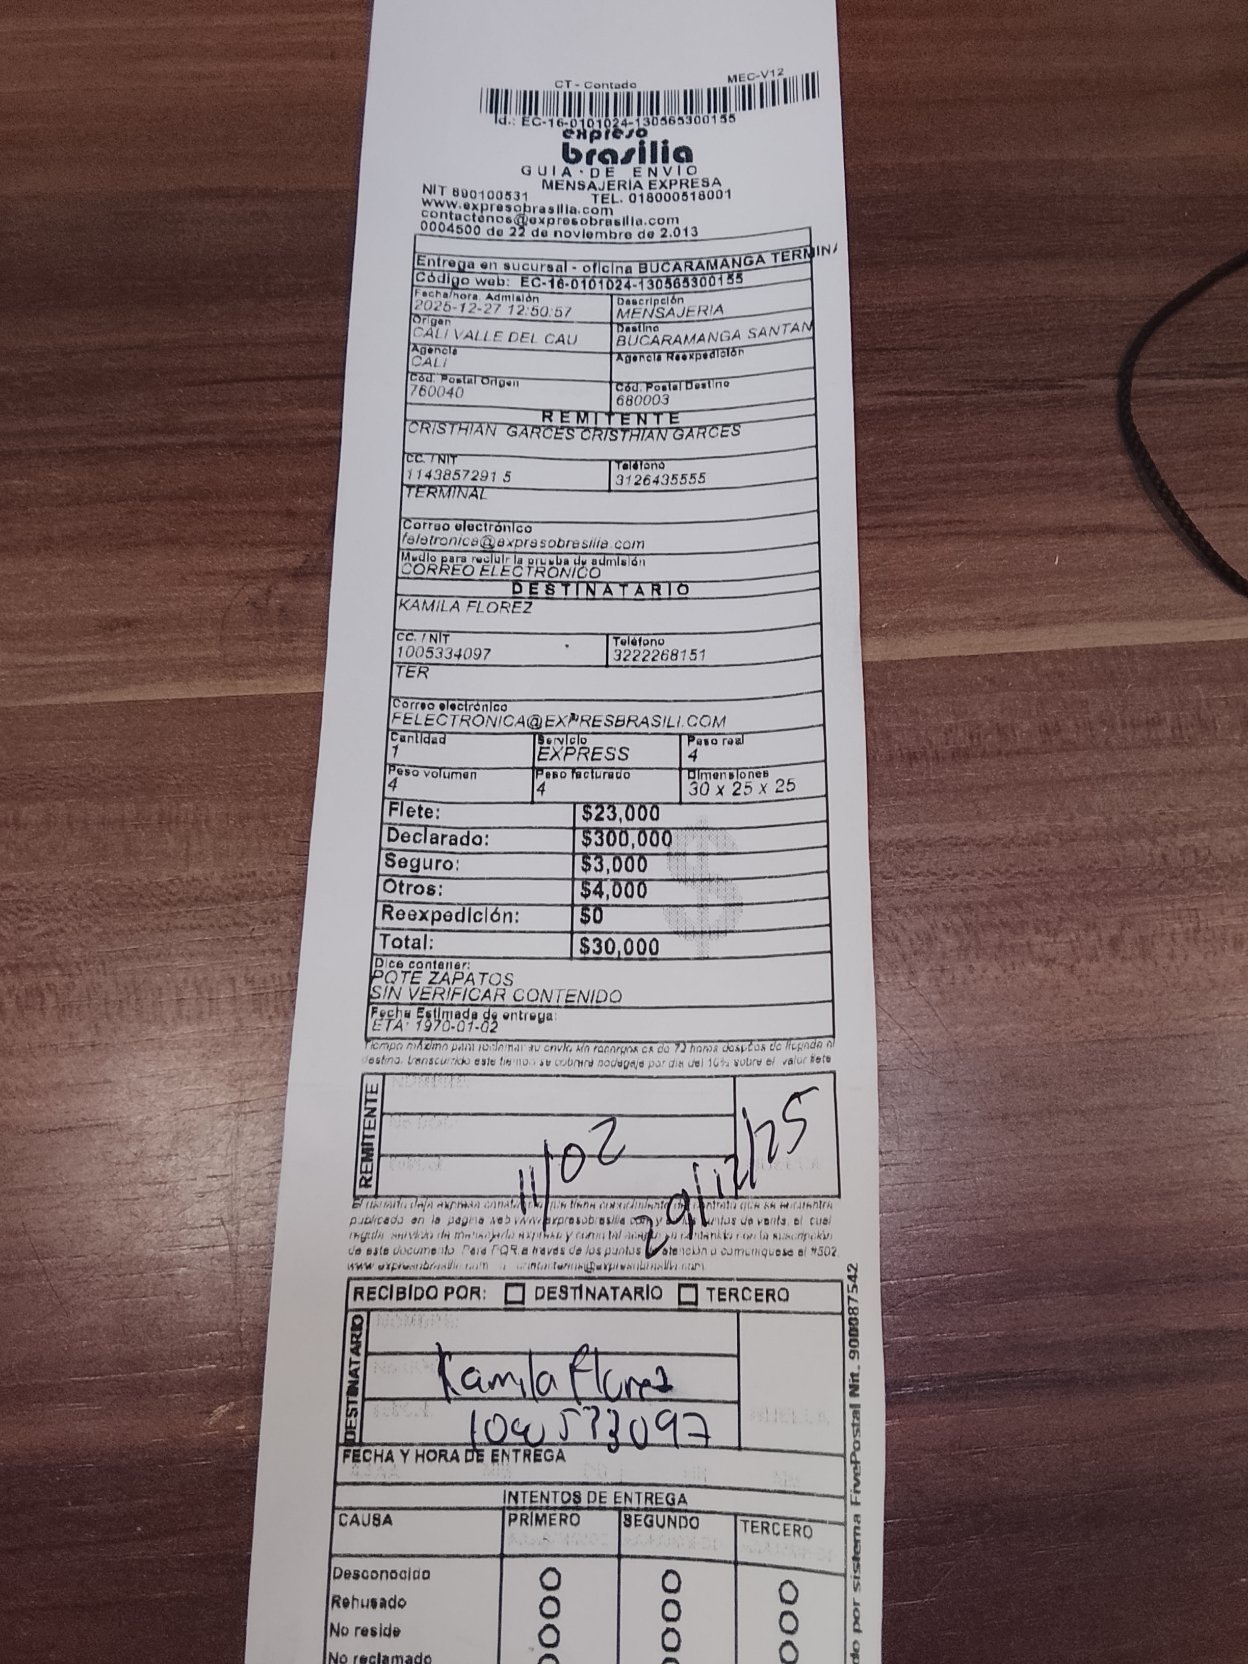 CT - Contado MEC-V12
Id.: EC-16-0101024-130565300155
expreso
brasilia
GUIA DE ENVIO
MENSAJERIA EXPRESA
NIT 890100531 TEL. 018000518001
www.expresobrasilia.com
contactenos@expresobrasilia.com
0004500 de 22 de noviembre de 2.013
Entrega en sucursal - oficina BUCARAMANGA TERMINA
Código web: EC-16-0101024-130565300155
Fecha/hora. Admisión Descripción
2025-12-27 12:50:57 MENSAJERIA
Origen Destino
CALI VALLE DEL CAU BUCARAMANGA SANTAN
Agencia Agencia Reexpedición
CALI
Cód. Postal Origen Cód. Postal Destino
760040 680003
REMITENTE
CRISTHIAN GARCES CRISTHIAN GARCES
CC. / NIT Teléfono
1143857291 5 3126435555
TERMINAL
Correo electrónico
feletronica@expresobrasilia.com
Medio para recibir la prueba de admisión
CORREO ELECTRONICO
DESTINATARIO
KAMILA FLOREZ
CC. / NIT Teléfono
1005334097 3222268151
TER
Correo electrónico
FELECTRONICA@EXPRESBRASILI.COM
Cantidad Servicio Peso real
1 EXPRESS 4
Peso volumen Peso facturado Dimensiones
4 4 30 x 25 x 25
Flete: $23,000
Declarado: $300,000
Seguro: $3,000
Otros: $4,000
Reexpedición: $0
Total: $30,000
Dice contener:
PQTE ZAPATOS
SIN VERIFICAR CONTENIDO
Fecha Estimada de entrega:
ETA: 1970-01-02
Tiempo máximo para reclamar su envío sin recargos es de 72 horas después de llegada al
destino, transcurrido este tiempo se cobrará bodegaje por día del 10% sobre el valor flete
REMITENTE
11/02
29/12/25
publicado en la pagina web www.expresobrasilia.com y en los puntos de venta, el cual
de este documento. Para PQR a través de los puntos atención o comuniquese al #502
RECIBIDO POR: DESTINATARIO TERCERO
DESTINATARIO
Kamila Florez
FECHA Y HORA DE ENTREGA
INTENTOS DE ENTREGA
CAUSA PRIMERO SEGUNDO TERCERO
Desconocido
Rehusado
No reside
No reclamado
do por sistema FivePostal Nit. 900087542